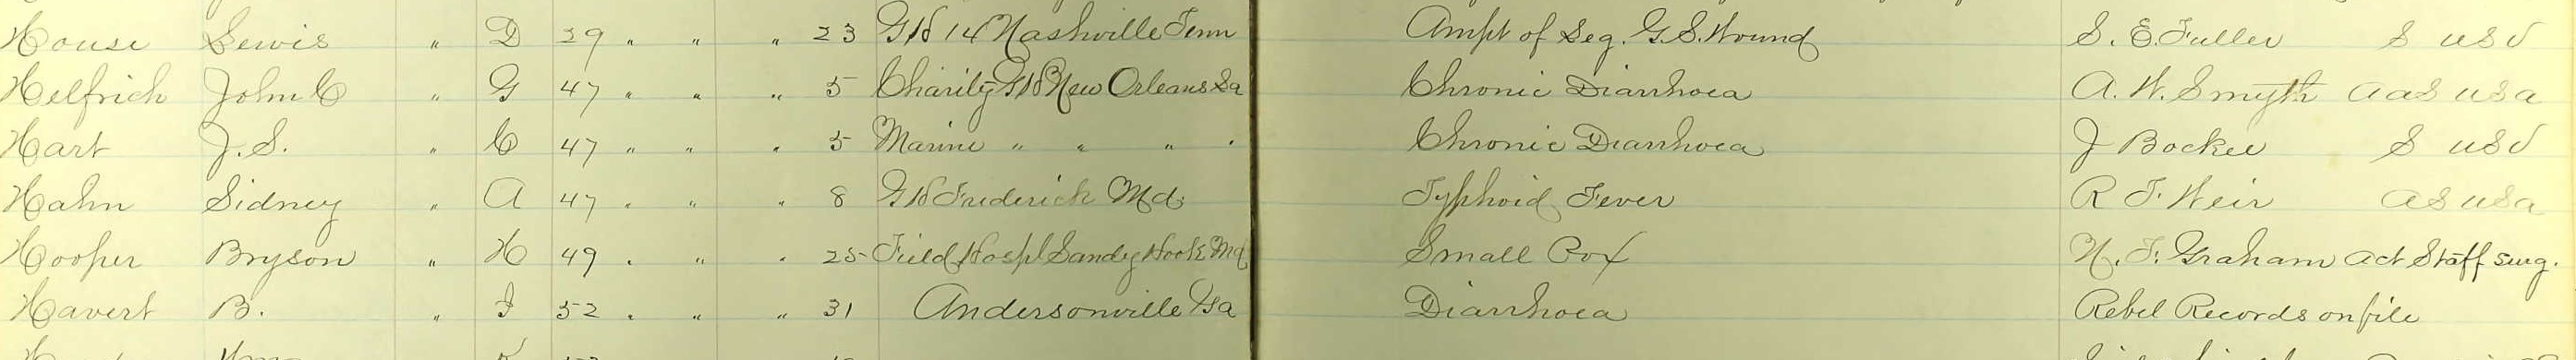 House Lewis " D 39 " " " 23 G H 14 Nashville Tenn Ampt of Leg. G. S. Wound S. E. Fuller S U S V
Helfrich John C " G 47 " " " 5 Charity G H New Orleans La Chronic Diarrhoea A. W. Smyth A A S U S A
Hart J. S. " C 47 " " " 5 Marine " " " " Chronic Diarrhoea J Bockee S U S V
Hahn Sidney " A 47 " " " 8 G H Frederick Md. Typhoid Fever R F Weir A S U S A
Hooper Bryson " H 49 " " " 25 Field Hospl Sandy Hook Md Small Pox N. F. Graham Act Staff Surg.
Havert B. " I 52 " " " 31 Andersonville Ga Diarrhoea Rebel Records on file